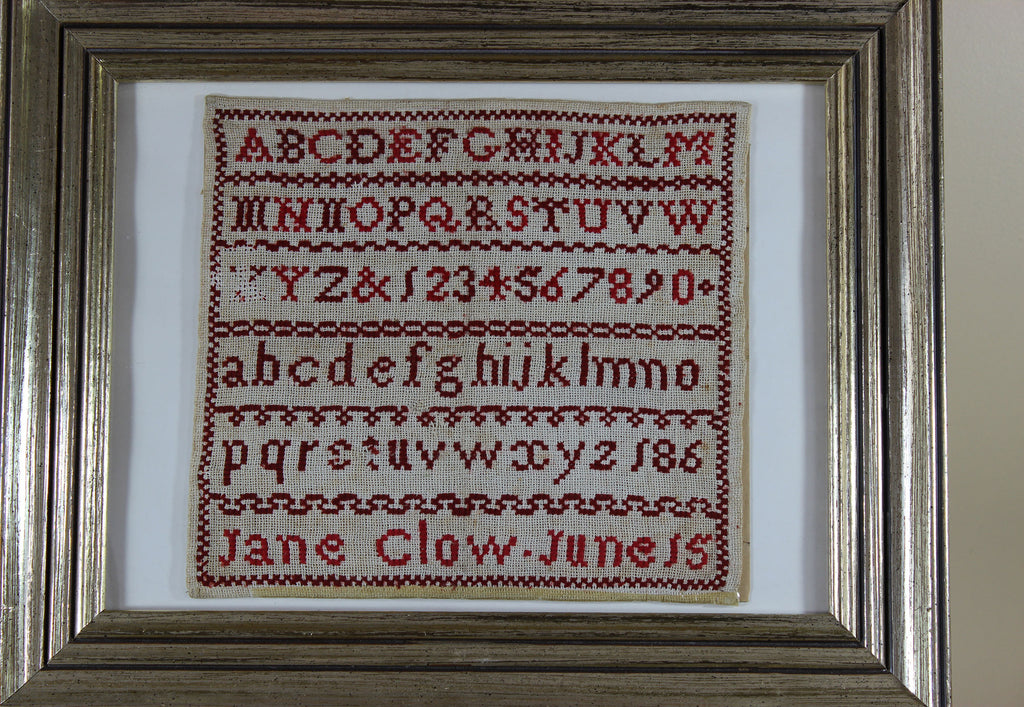 ABCDEFGHIJKLM
MNNOPQRSTUVW
XYZ&1234567890
abcdefghijklmno
pqrstuvwxyz 186
Jane Clow. June 15